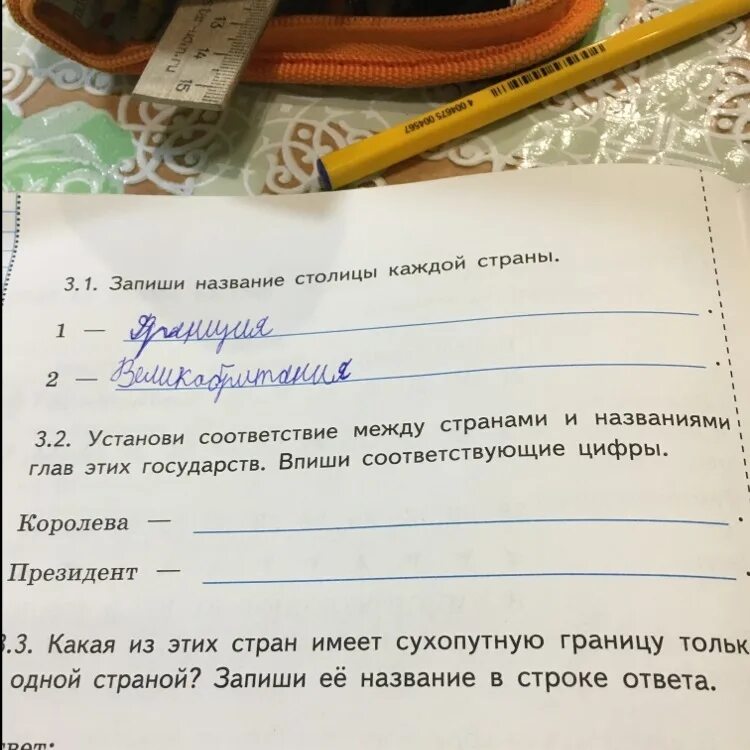 13 14 15
4 004675 004567
3.1. Запиши название столицы каждой страны.
1 — Франция.
2 — Великобритания.
3.2. Установи соответствие между странами и названиями
глав этих государств. Впиши соответствующие цифры.
Королева — .
Президент — .
3.3. Какая из этих стран имеет сухопутную границу тольк
одной страной? Запиши её название в строке ответа.